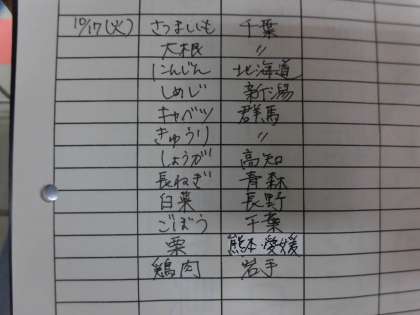 10/17(火) さつまいも 千葉
大根 〃
にんじん 北海道
しめじ 新潟
キャベツ 群馬
きゅうり 〃
しょうが 高知
長ねぎ 青森
白菜 長野
ごぼう 千葉
栗 熊本・愛媛
鶏肉 岩手